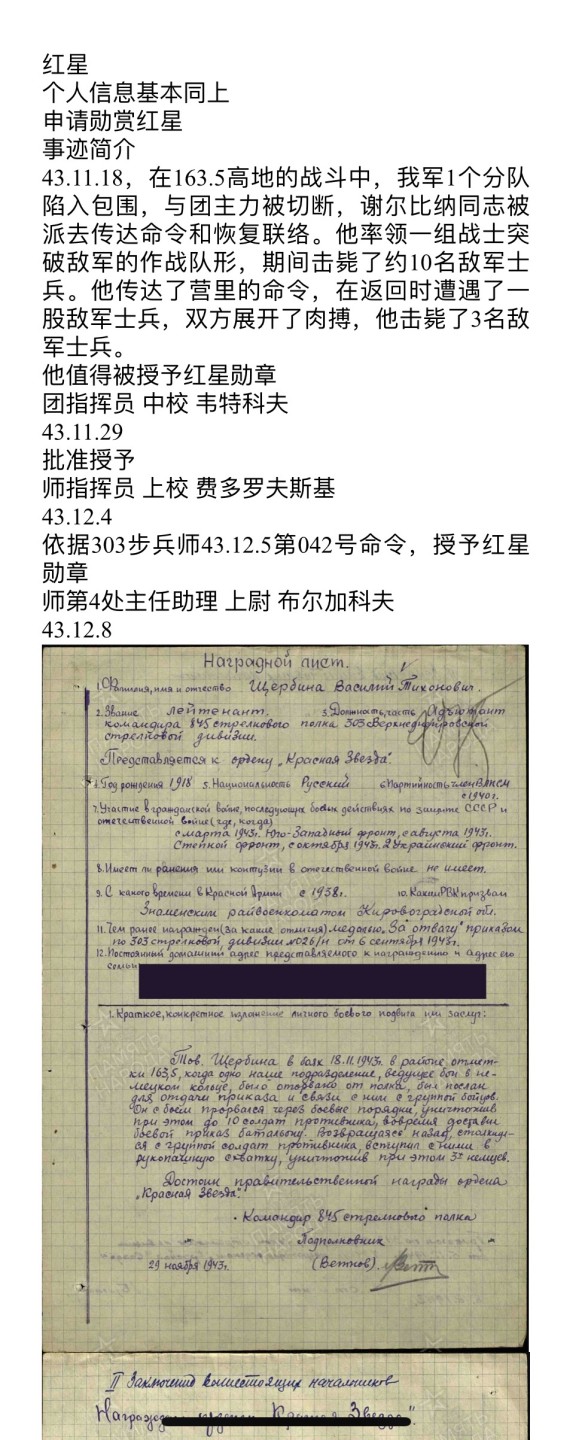 红星
个人信息基本同上
申请勋赏红星
事迹简介
43.11.18，在163.5高地的战斗中，我军1个分队
陷入包围，与团主力被切断，谢尔比纳同志被
派去传达命令和恢复联络。他率领一组战士突
破敌军的作战队形，期间击毙了约10名敌军士
兵。他传达了营里的命令，在返回时遭遇了一
股敌军士兵，双方展开了肉搏，他击毙了3名敌
军士兵。
他值得被授予红星勋章
团指挥员 中校 韦特科夫
43.11.29
批准授予
师指挥员 上校 费多罗夫斯基
43.12.4
依据303步兵师43.12.5第042号命令，授予红星
勋章
师第4处主任助理 上尉 布尔加科夫
43.12.8
Наградной лист.
1. Фамилия, имя и отчество Щербина Василий Тихонович.
2. Звание лейтенант. 3. Должность, часть Адъютант
командира 845 стрелкового полка 303 Верхнеднепровской
стрелковой дивизии.
Представляется к ордену „Красная Звезда"
4. Год рождения 1918 5. Национальность Русский 6. Партийность член ВЛКСМ
с 1940 г.
7. Участие в гражданской войне, последующих боевых действиях по защите СССР и
отечественной войне (где, когда)
с марта 1943г. Юго-Западный фронт, с августа 1943г.
Степной фронт, с октября 1943г. 2 Украинский фронт.
8. Имеет ли ранения или контузии в отечественной войне не имеет.
9. С какого времени в Красной Армии с 1938г. 10. Каким РВК призван
Знаменским райвоенкоматом Кировоградской обл.
11. Чем ранее награжден (за какие отличия) медалью „За отвагу" приказом
по 303 стрелковой дивизии №026/н от 6 сентября 1943г.
12. Постоянный домашний адрес представляемого к награждению и адрес его
семьи
1. Краткое, конкретное изложение личного боевого подвига или заслуг:
Тов. Щербина в боях 18.11.1943г. в районе отмет-
ки 163,5, когда одно наше подразделение, ведущее бой в не-
мецком кольце, было оторвано от полка, был послан
для отдачи приказа и связи с ним с группой бойцов.
Он с боем прорвался через боевые порядки, уничтожив
при этом до 10 солдат противника, вовремя доставил
боевой приказ батальону. Возвращаясь назад, столкнул-
ся с группой солдат противника, вступил с ними в
рукопашную схватку, уничтожив при этом 3х немцев.
Достоин правительственной награды ордена
„Красная Звезда".
Командир 845 стрелкового полка
Подполковник
29 ноября 1943г. (Ветков)
II Заключение вышестоящих начальников
Красная Звезда"